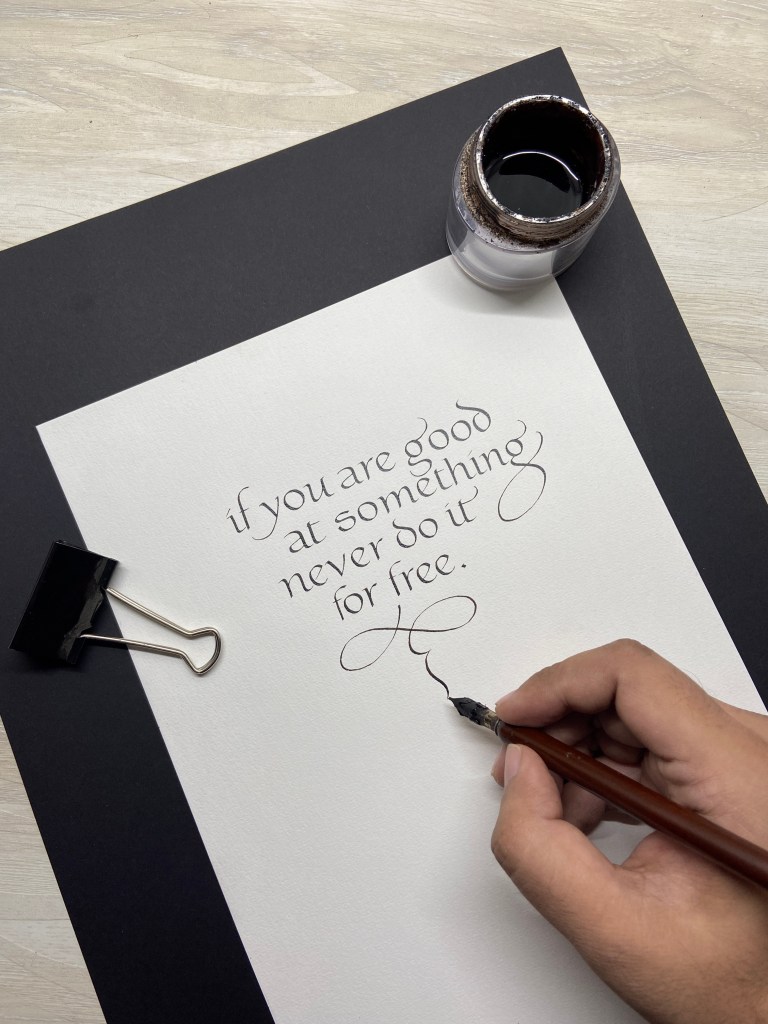 if you are good
at something
never do it
for free.